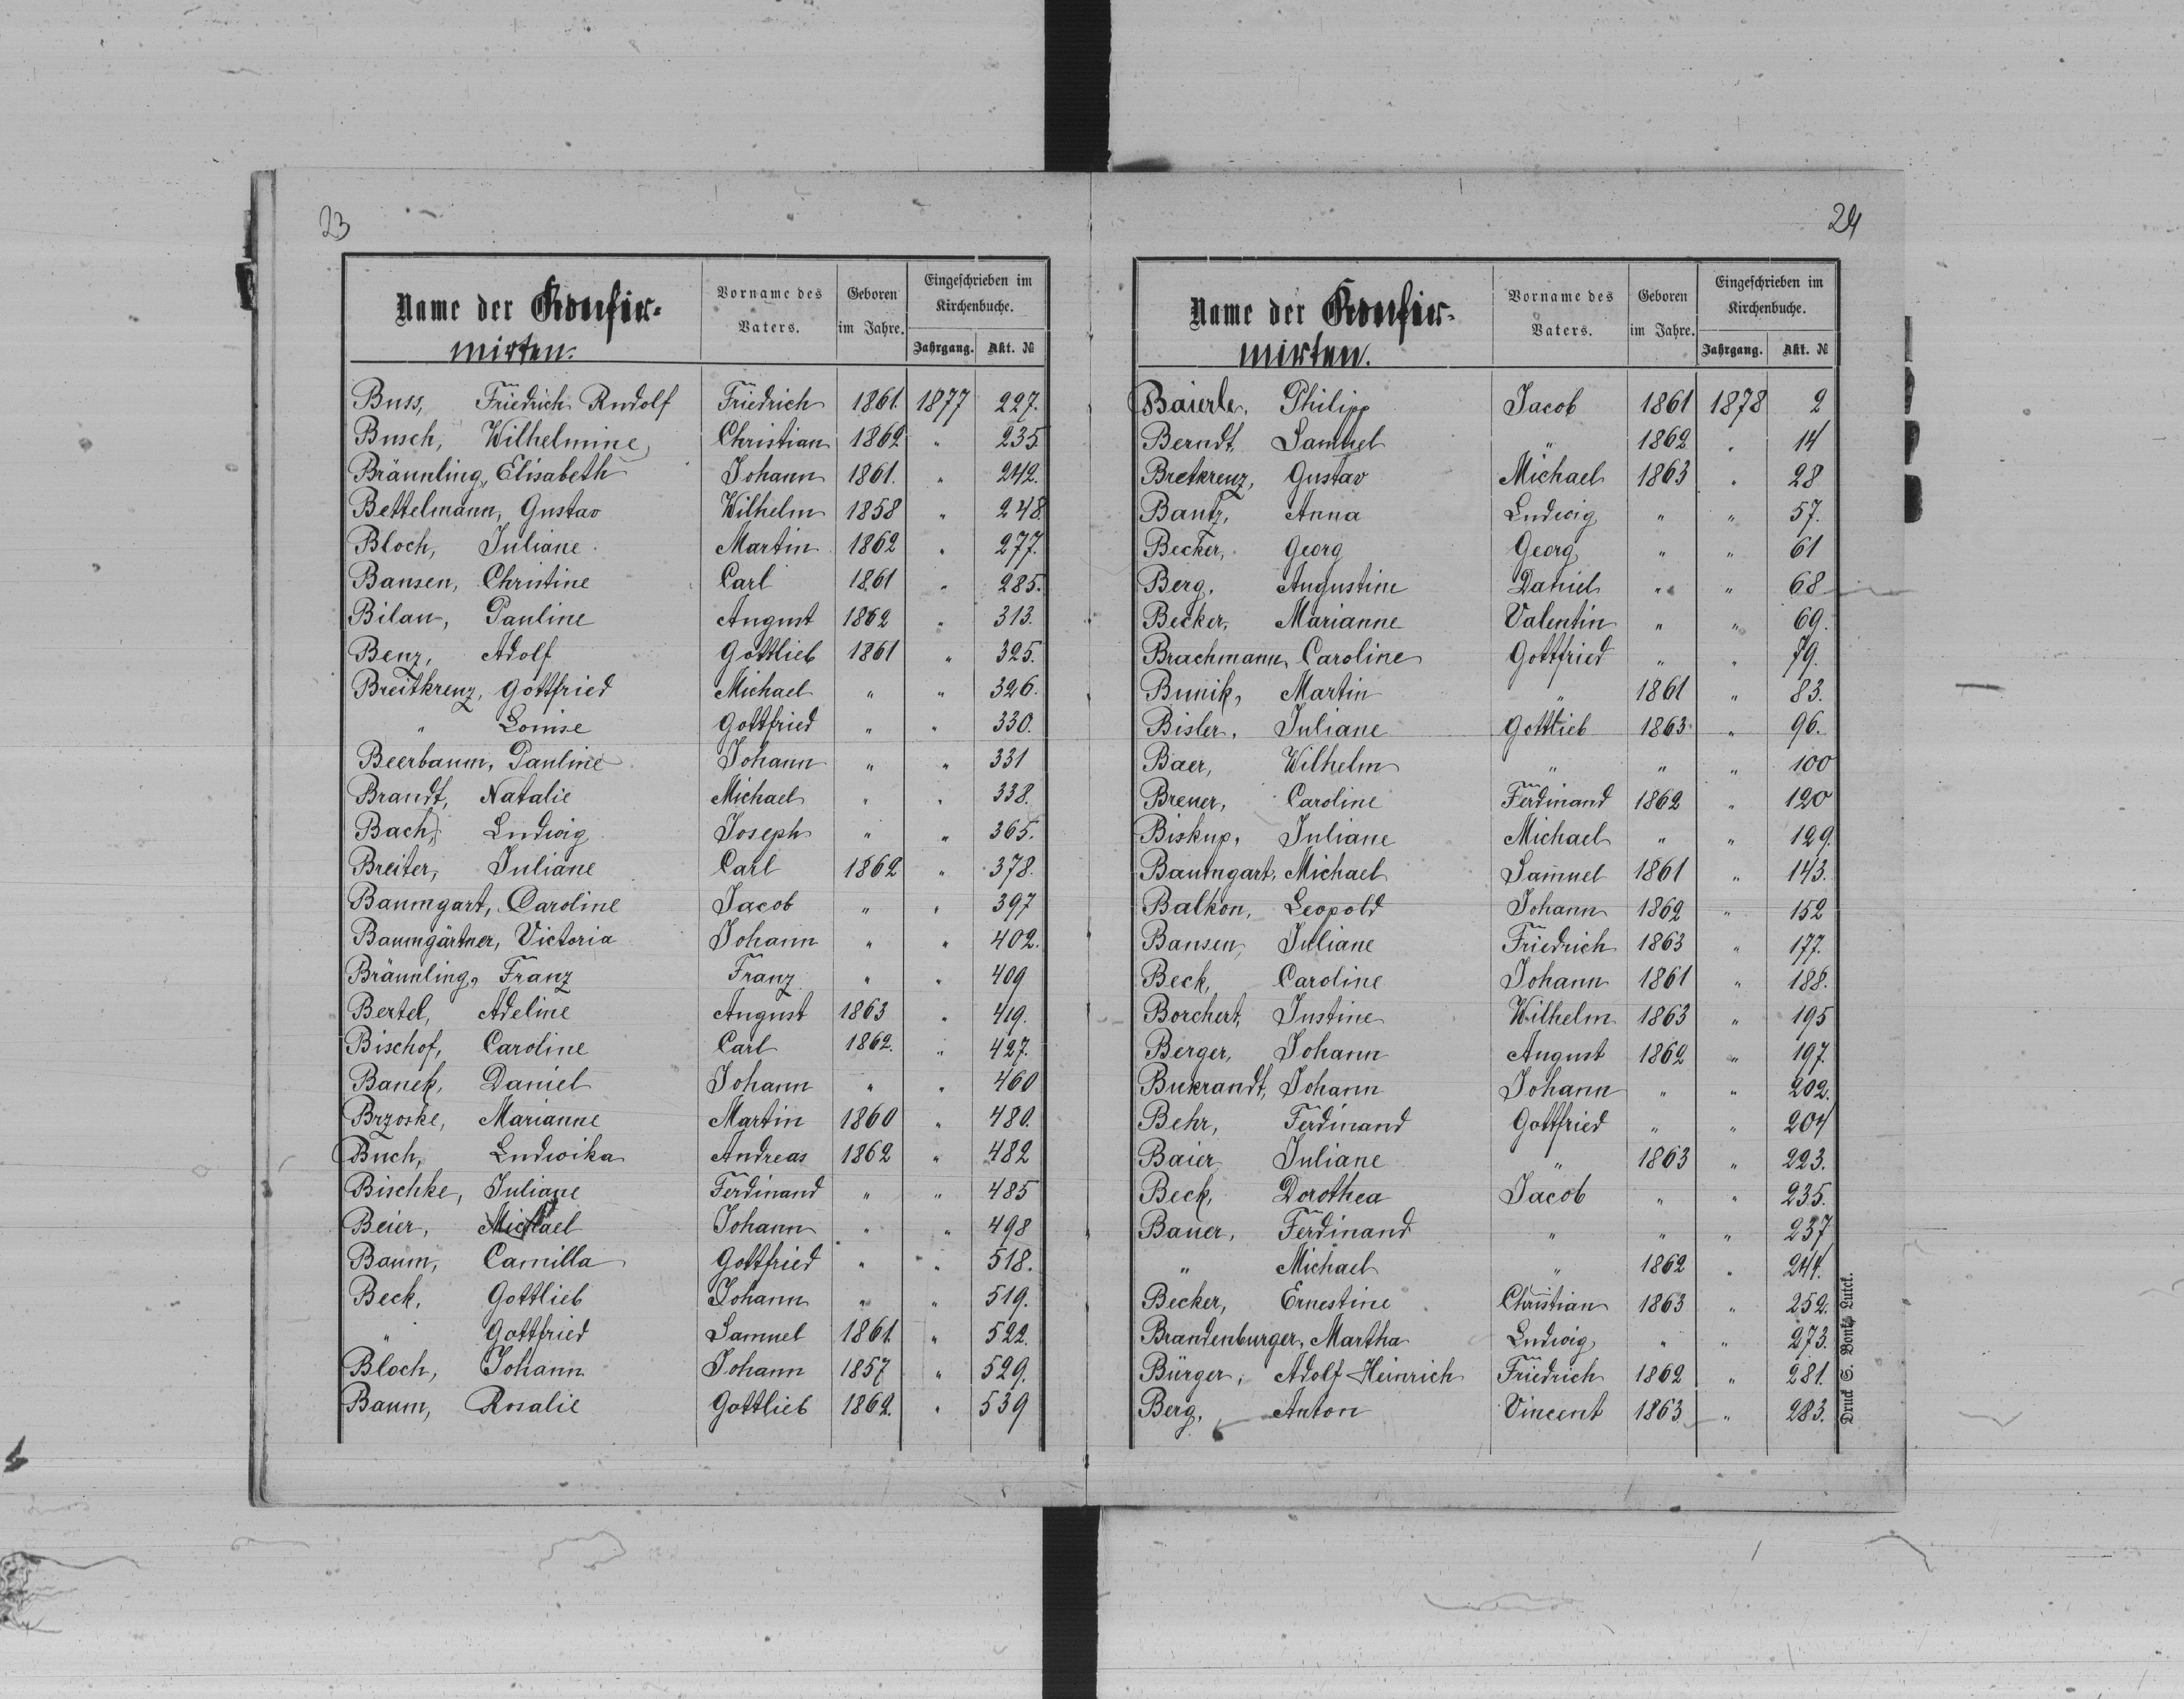 23
Name der Konfir-
mirten.
Vorname des Vaters.
Geboren im Jahre.
Eingeschrieben im Kirchenbuche.
Jahrgang. Akt. №
Buss, Friedrich Rudolf Friedrich 1861. 1877 227.
Busch, Wilhelmine Christian 1862 " 235
Bräunling, Elisabeth Johann 1861. " 242.
Bettelmann, Gustav Wilhelm 1858 " 248
Bloch, Juliane Martin 1862 " 277.
Bansen, Christine Carl 1861 " 285.
Bilau, Pauline August 1862 " 313.
Benz, Adolf Gottlieb 1861 " 325.
Breitkreuz, Gottfried Michael " " 326.
" Louise Gottfried " " 330.
Beerbaum, Pauline Johann " " 331
Brandt, Natalie Michael " " 338.
Bach, Ludwig Joseph " " 365.
Breiter, Juliane Carl 1862 " 378.
Baumgart, Caroline Jacob " " 397
Baumgärtner, Victoria Johann " " 402.
Bräunling, Franz Franz " " 409
Bertel, Adeline August 1863 " 419.
Bischof, Caroline Carl 1862. " 427.
Banek, Daniel Johann " " 460
Brzoske, Marianne Martin 1860 " 480.
Buch, Ludwika Andreas 1862 " 482
Bischke, Juliane Ferdinand " " 485
Beier, Michael Johann " " 498
Baum, Camilla Gottfried " " 518.
Beck, Gottlieb Johann " " 519.
" Gottfried Samuel 1861. " 522.
Bloch, Johann Johann 1857 " 529.
Baum, Rosalie Gottlieb 1862. " 539
24
Name der Konfir-
mirten.
Vorname des Vaters.
Geboren im Jahre.
Eingeschrieben im Kirchenbuche.
Jahrgang. Akt. №
Baierle, Philipp Jacob 1861 1878 2
Berndt, Samuel " 1862 " 14
Bretkreuz, Gustav Michael 1863 " 28
Bantz, Anna Ludwig " " 57.
Becker, Georg Georg " " 61
Berg, Augustine Daniel " " 68
Becker, Marianne Valentin " " 69.
Brachmann, Caroline Gottfried " " 79.
Bunik, Martin " 1861 " 83.
Bisler, Juliane Gottlieb 1863 " 96.
Baer, Wilhelm " " " 100
Breuer, Caroline Ferdinand 1862 " 120
Biskup, Juliane Michael " " 129.
Baumgart, Michael Samuel 1861 " 143.
Balkon, Leopold Johann 1862 " 152
Bansen, Juliane Friedrich 1863 " 177.
Beck, Caroline Johann 1861 " 188.
Borchert, Justine Wilhelm 1863 " 195
Berger, Johann August 1862 " 197.
Bukrandt, Johann Johann " " 202.
Behr, Ferdinand Gottfried " " 204
Baier, Juliane " 1863 " 223.
Beck, Dorothea Jacob " " 235.
Bauer, Ferdinand " " " 237
" Michael " 1862 " 244.
Becker, Ernestine Christian 1863 " 252.
Brandenburger, Martha Ludwig " " 273.
Bürger, Adolf Heinrich Friedrich 1862 " 281.
Berg, Anton Vincent 1863 " 283.
Druck S. Bonk, Lutck.